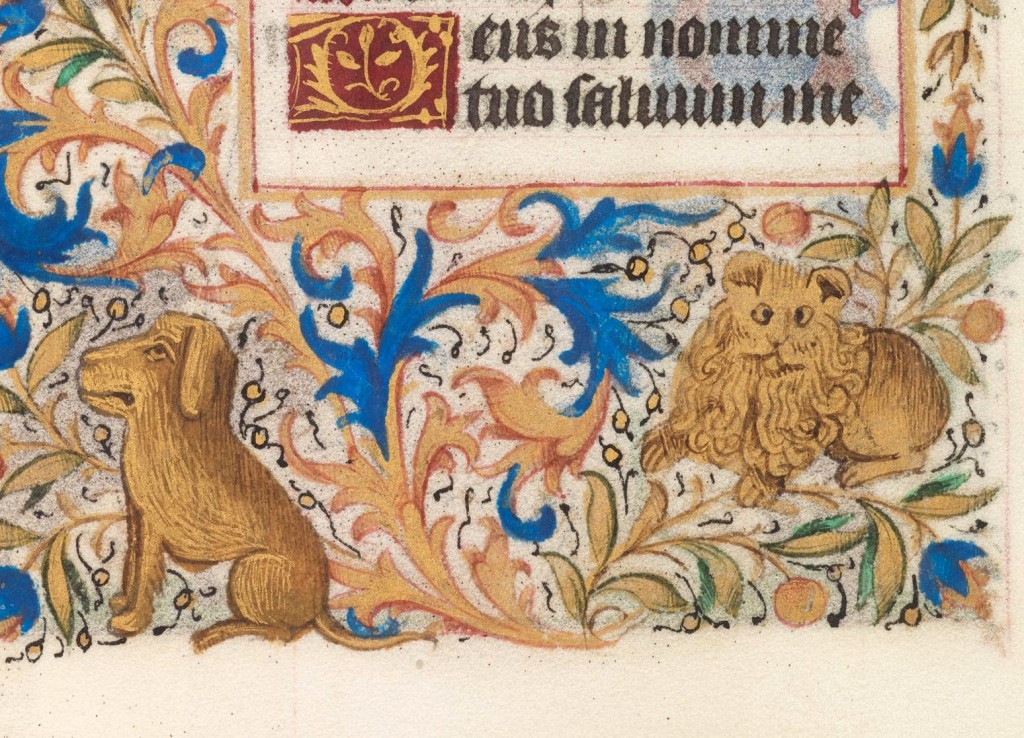 Deus in nomine
tuo saluum me